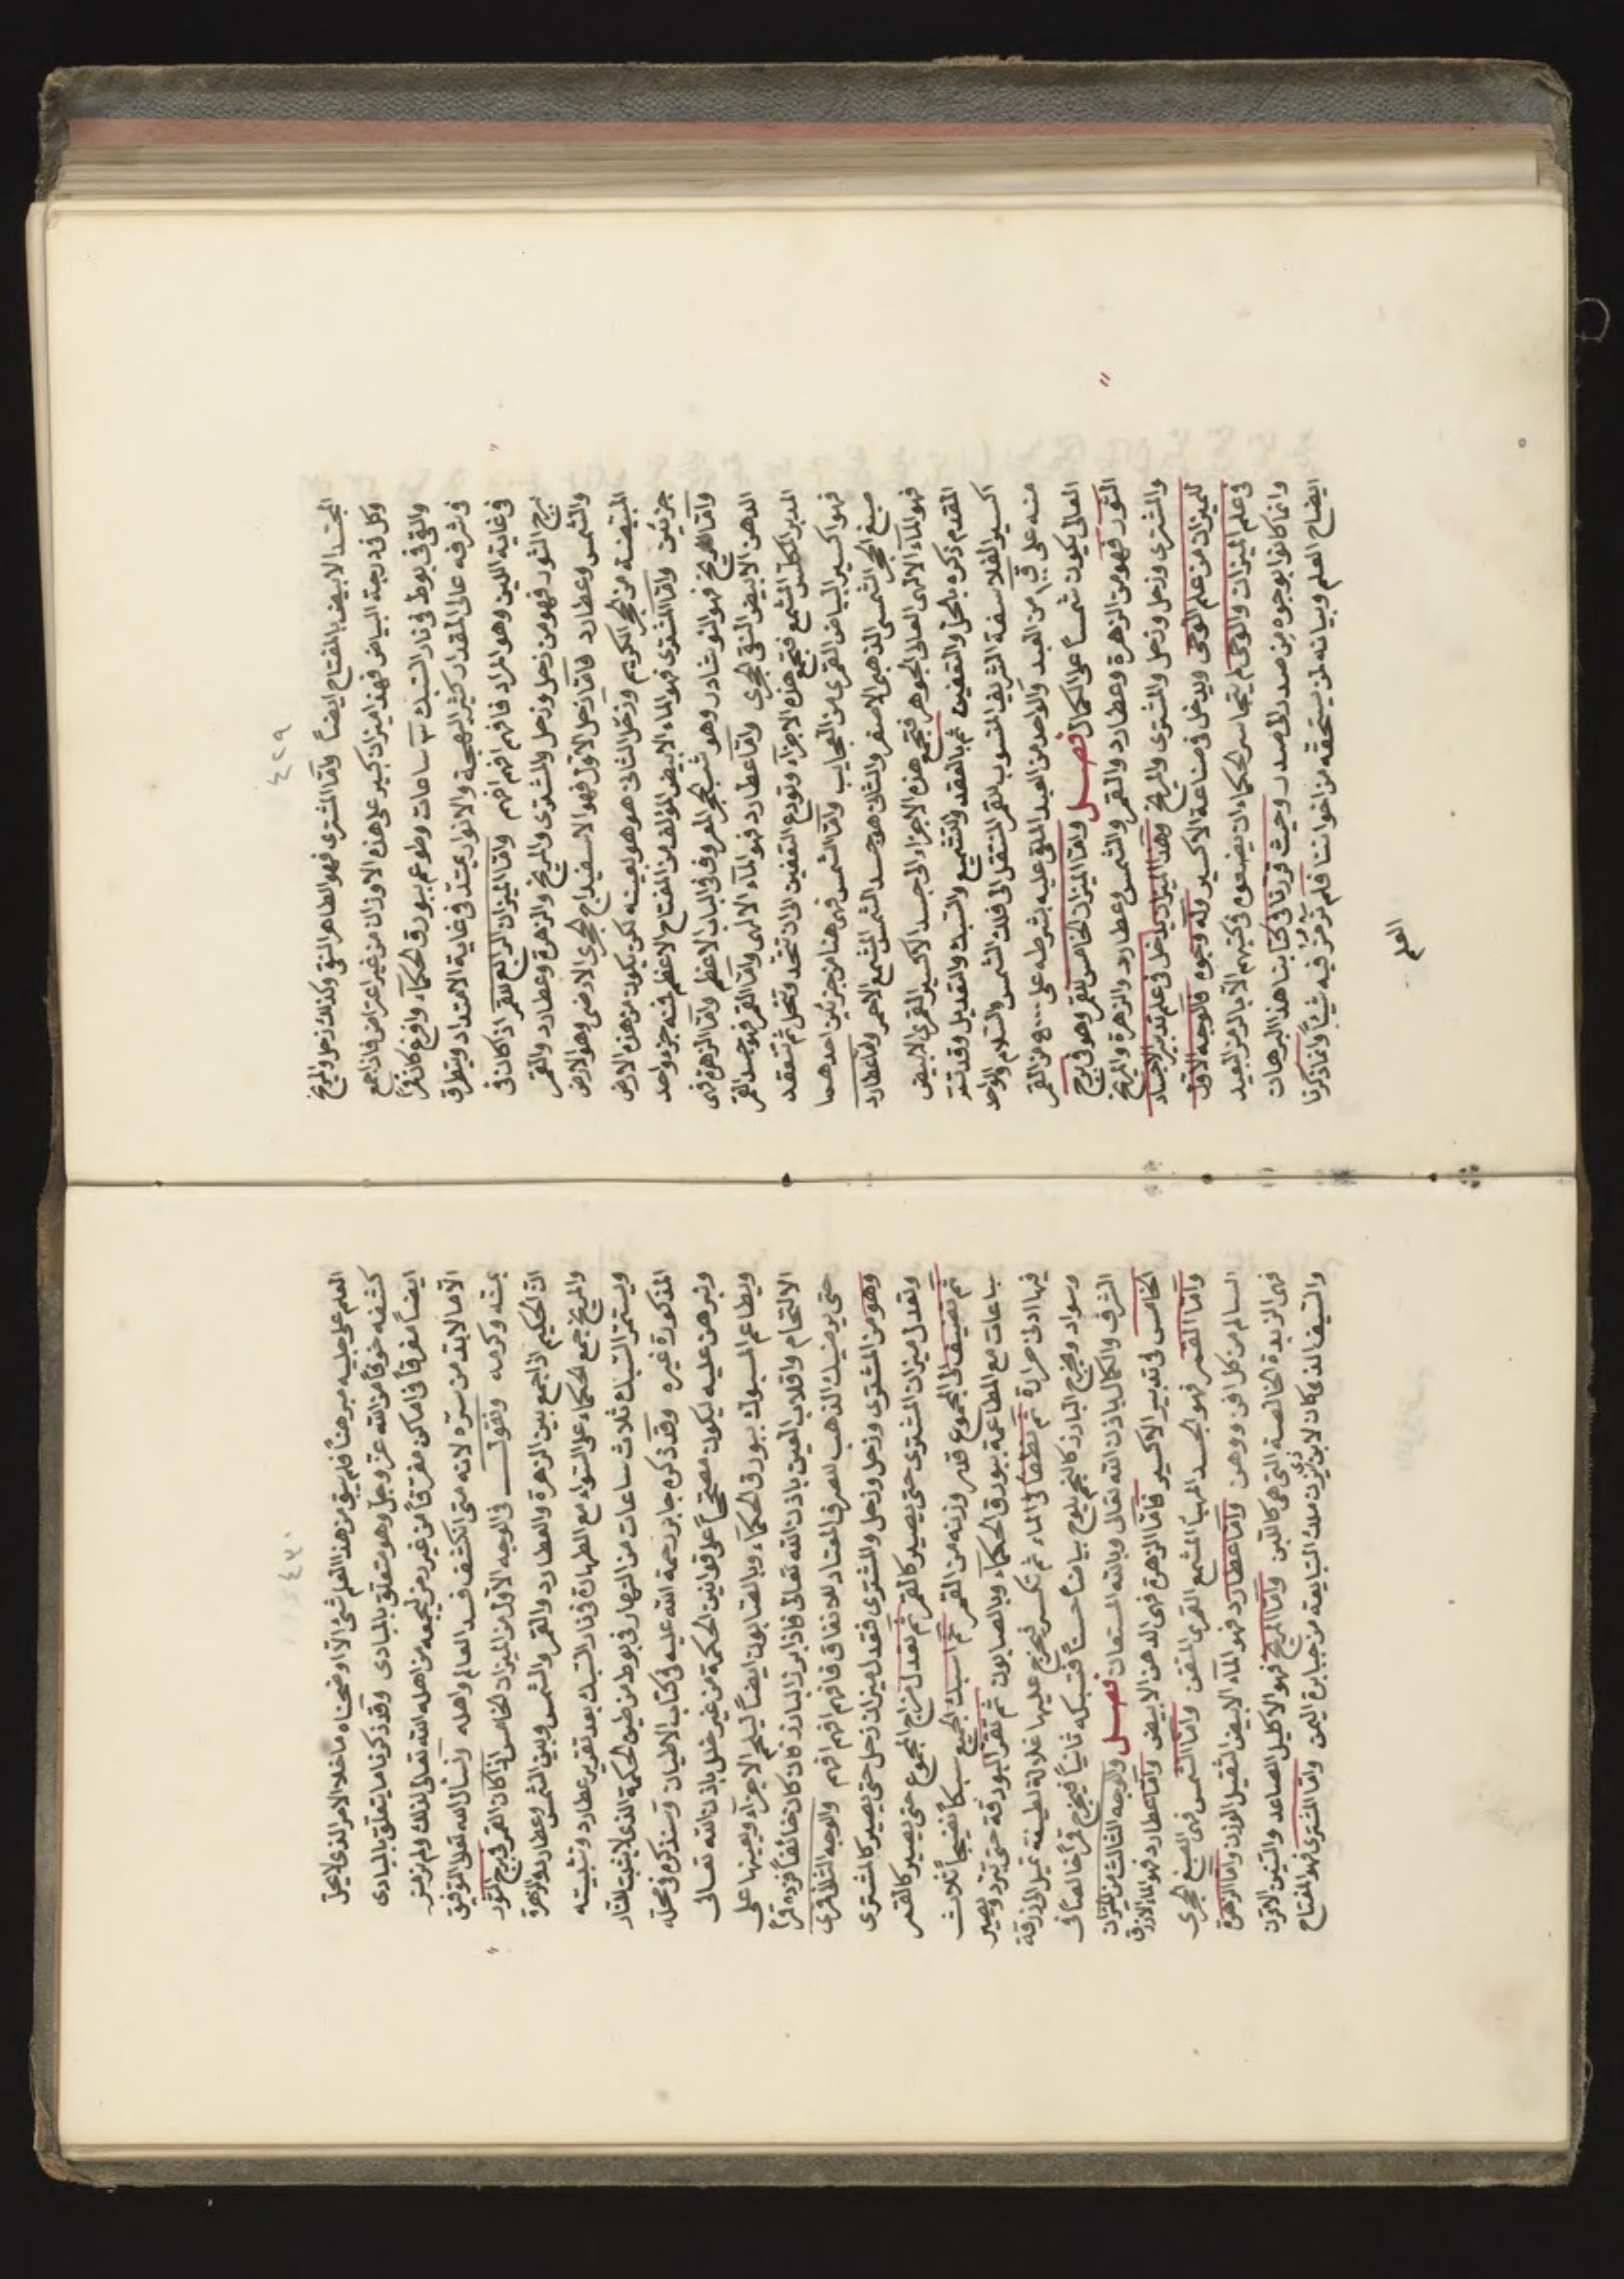 ٤٢٩
الجسد الابيض بالمفتاح ايضاً وامّا المشترى فهو الطاهر النقى وكذلك زحل والمريخ
وكل فى درجة البياض فهذا ميزان كبير على هذه الاوزان من غير اعتراض فاذا جمع
والقى فى بوط فى نار السبك ٣ ساعات وطوعم ببورق الحكماء وافرغ كان قمراً
فى شرفه عالى المقدار كثير البهجة والانوار يمتد فى غاية الامتداد ويتطرق
فى غاية اللين وهو المراد فافهم افهم افهم وامّا الميزان الرابع للقمر اذا كان فى
برج الثور فهو من زحل وزحل والمشترى والمريخ والزهرة وعطارد والقمر
والشمس وعطارد فامّا زحل الاول فهو الاسفيداج الحجرى الارضى وهو الارض
المبيضة من الحجر الكريم وزحل الثانى هو هو بعينه لكن يكون من هذه الارض
جزئين وامّا المشترى فهو الماء الابيض المؤلف من المفتاح الاعظم فمنه جزء واحد
وامّا المريخ فهو النوشادر وهو شب الحجر المعروف فى الباب الاعظم وامّا الزهرة فهى
الدهن الابيض النقى الحجرى وامّا عطارد فهو الماء الالهى وامّا القمر فهو جسد القمر
المدبر المكلس المشمع فتجمع هذه الاجزاء وتودع التعفين الى ان تتحد وتنحل ثم تنعقد
فهو اكسير البياض القمرى من العجايب وامّا الشمس فهى هنا من جزئين احدهما
صبغ الحجر الشمسى الذهبى الاصفر والثانى هو جسد الشمس المشمع الاحمر وامّا عطارد
فهو الماء الالهى العالى الجوهر فتجمع هذه الاجزاء الى جسد الاكسير القمرى الابيض
المقدم ذكره بالحل والتعفين ثم بالعقد والتشميع والتسبك والتعديل وقد تمّ
اكسير الفلاسفة الشريف المنسوب للقمر المنتقل الى فلك الشمس والسلام والواحد
منه على من العبد والواحد من العبد الملقى عليه بشرطه على من القمر
العالى يكون شمساً على الكمال فصل وامّا الميزان الخامس للقمر وهو فى برج
الثور فهو من الزهرة وعطارد والقمر والشمس وعطارد والزهرة والمريخ
والمشترى وزحل وزحل والمشترى والمريخ وهذا الميزان يدخل فى علم تدبير الاجساد
لميزان من علم الوحى ويدخل فى صناعة الاكسير وله وجوه فالوجه الاول
فى علم الميزان والوحى لم يتجاسر الحكماء ان يضعوه فى كتبهم الّا بالرمز البعيد
وانما كانوا يوجوه من صدر الى صدر وحيث قررنا فى كتابنا هذا البرهان
ايضاح العلم وبيانه لمن يستحقه من اخواننا فلم نرمز فيه شيئاً وانما ذكرنا
العلم
٤٣٠
العلم على جليه مبرهناً فلم يبق من هذا العلم شئ الّا اوضحناه ما خلا الامر الذى لا يحل
كشفه خوفاً من الله عز وجل وهو متعلق بالمبادى وقد ذكرنا ما يتعلق بالمبادى
ايضاً مفرقاً فى اماكن مفرقاً من غير رمز ليجمعه من اهله الله تعالى لذلك ولم نرمز
الّا ما لابد من ستره لانه متى انكشف فسد العالم واهله ونسأل الله تعالى التوفيق
بمنّه وكرمه ونقول فى الوجه الاول من الميزان الخامس اذا كان القمر فى برج الثور
انّ الحكيم اذا جمع بين الزهرة والعطارد والقمر والشمس وبين الشمس وعطارد والزهرة
والمريخ جمع الحكماء على السواء مع الطهارة فى نار السبك بعد تقرير عطارد وتثبيته
ويستمر السبك ثلاث ساعات من النهار فى بوط من طين الحكمة الذى لا يثبت للنار
المذكورة غيره وقد ذكره جابر رحمة الله عليه فى كتاب الاطيان وسنذكره فى محله
ونبرهن عليه ليكون مصححاً على قوانين الحكمة من غير خلل باذن الله تعالى
ويطاعم المسبوك ببورق الحكماء وبالصابون ايضاً ليلحم الاجزاء ويعينها على
الالتحام وافلات العين باذن الله تعالى فاذا برز البارز فان كان خالصاً فرده قمراً
حتى يرضيك الذهب للصرف المعتاد للانفاق فافهم افهم افهم والوجه الثانى قمرى
وهو من المشترى وزحل وزحل والمشترى فعدل ميزان زحل حتى يصير كالمشترى
وتعدل ميزان المشترى حتى يصير كالقمر ثم تعدل مزاج المجموع حتى يصير كالقمر
ثم تضيف الى المجموع قدر وزنه من القمر ثم اسبك الجميع سبكاً نضيجاً ثلاث
ساعات مع المطاعمة ببورق الحكماء وبالصابون ثم تقر البودقة حتى تبرد ويصير
فيها ادنى حرارة ثم تطفأ فى الماء ثم تكسر فيخرج عليها غلالة لطيفة تميل الى الزرقة
وسواد ويخرج البارز كالنجم يلوح بياضاً حسناً فتسبكه ثانياً فيخرج قمراً خالصاً فى
الشرف والكمال باذن الله تعالى وبالله المستعان فصل والوجه الثالث من الميزان
الخامس فى تدبير الاكسير فامّا الزهرة فهى الدهن الابيض وامّا عطارد فهو الماء الازرق
وامّا القمر فهو الجسد المهيّأ المشمع القمرى المتقن وامّا الشمس فهى الصبغ الحجرى
السالم من كل افن ووهن وامّا عطارد فهو الماء الابيض الثقيل الوزن وامّا الزهرة
فهى الزبدة الخالصة التى هى كاللبن وامّا المريخ فهو الاكليل الصاعد والتنين الاقرن
والسيف الذى كان لابن ذى يزن ملك التبايعة من جبابرة اليمن وامّا المشترى فهو المفتاح